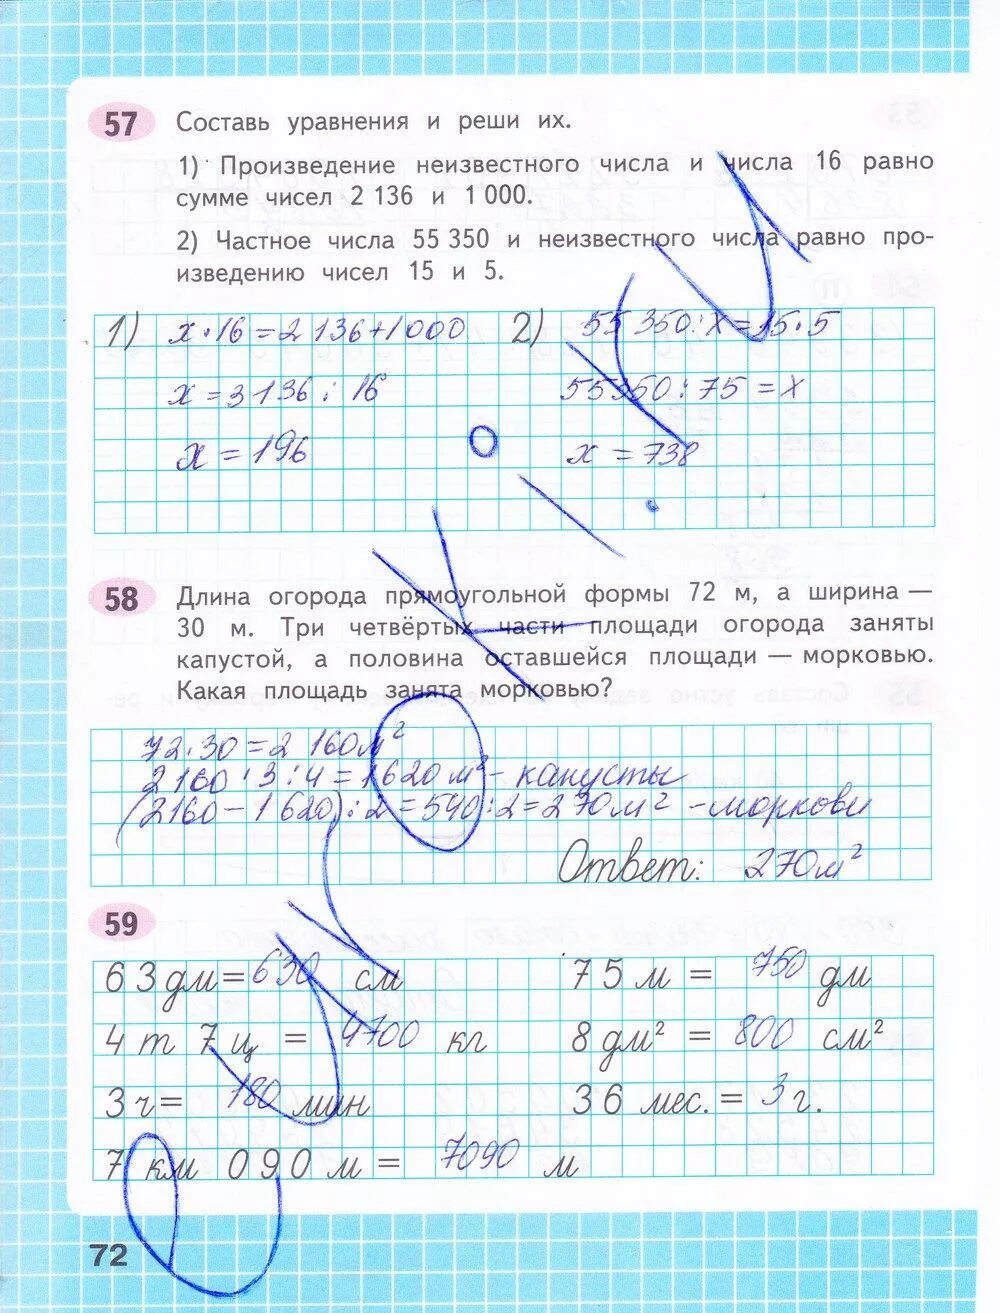 57 Составь уравнения и реши их.
1) Произведение неизвестного числа и числа 16 равно
сумме чисел 2 136 и 1 000.
2) Частное числа 55 350 и неизвестного числа равно про-
изведению чисел 15 и 5.
1) х·16=2 136+1000 2) 55 350:х=15·5
х=3136:16 55350:75=х
х=196 х=738
58 Длина огорода прямоугольной формы 72 м, а ширина —
30 м. Три четвёртых части площади огорода заняты
капустой, а половина оставшейся площади — морковью.
Какая площадь занята морковью?
72·30=2 160м²
2160·3:4=1620м²- капусты
(2160-1620):2=540:2=270м² -моркови
Ответ: 270м²
59
63дм=630 см 75м = 750 дм
4 т 7 ц = 4700 кг 8 дм² = 800 см²
3ч= 180 мин 36 мес.= 3г.
7 км 090м = 7090 м
72